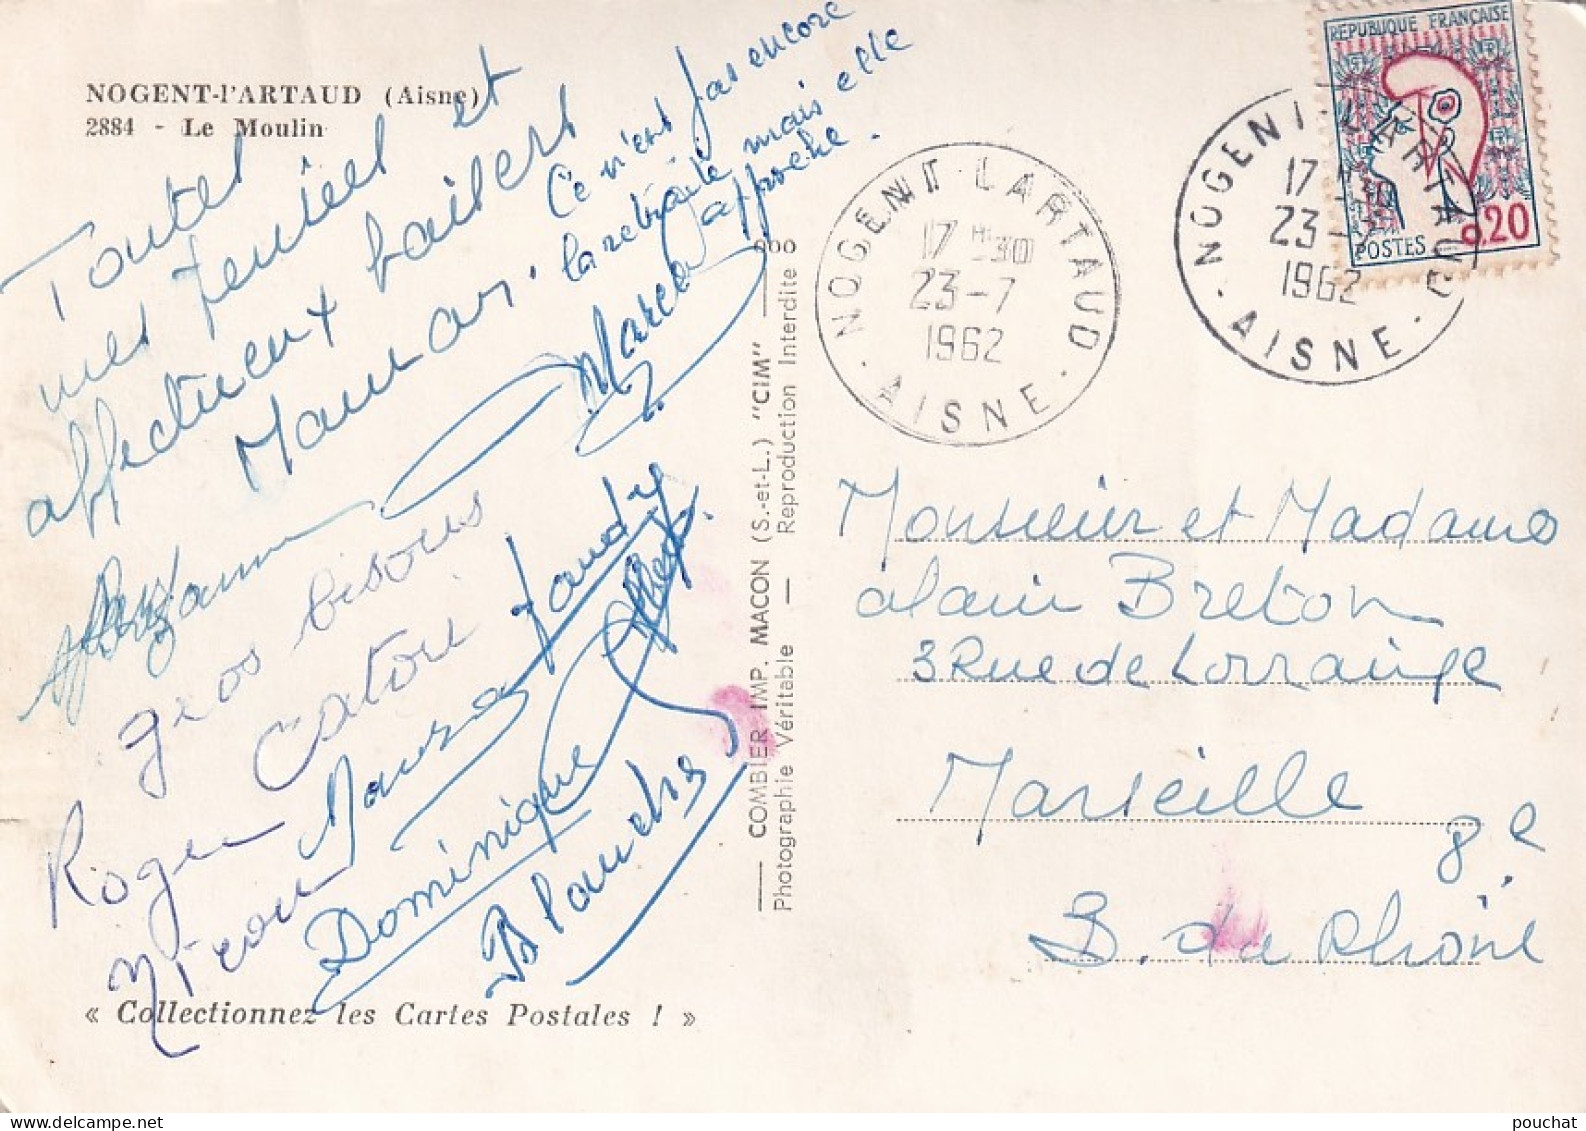 NOGENT-l'ARTAUD (Aisne)
2884 - Le Moulin
Toutes
mes pensées et
affectueux baisers
Maman.
Ce n'est pas encore
la retraite mais elle
approche.
Marcel
Suzanne
gros bisous
Catou
Roger
Dominique
Blanche
« Collectionnez les Cartes Postales ! »
COMBIER IMP. MACON (S.-et-L.) "CIM"
Photographie Véritable — Reproduction Interdite
NOGENT L'ARTAUD
17 H 30
23-7
1962
AISNE
NOGENT L'ARTAUD
17
23
1962
AISNE
REPUBLIQUE FRANÇAISE
POSTES
0,20
Monsieur et Madame
Alain Breton
3 Rue de Lorraine
Marseille
8e
B. du Rhône
pouchat